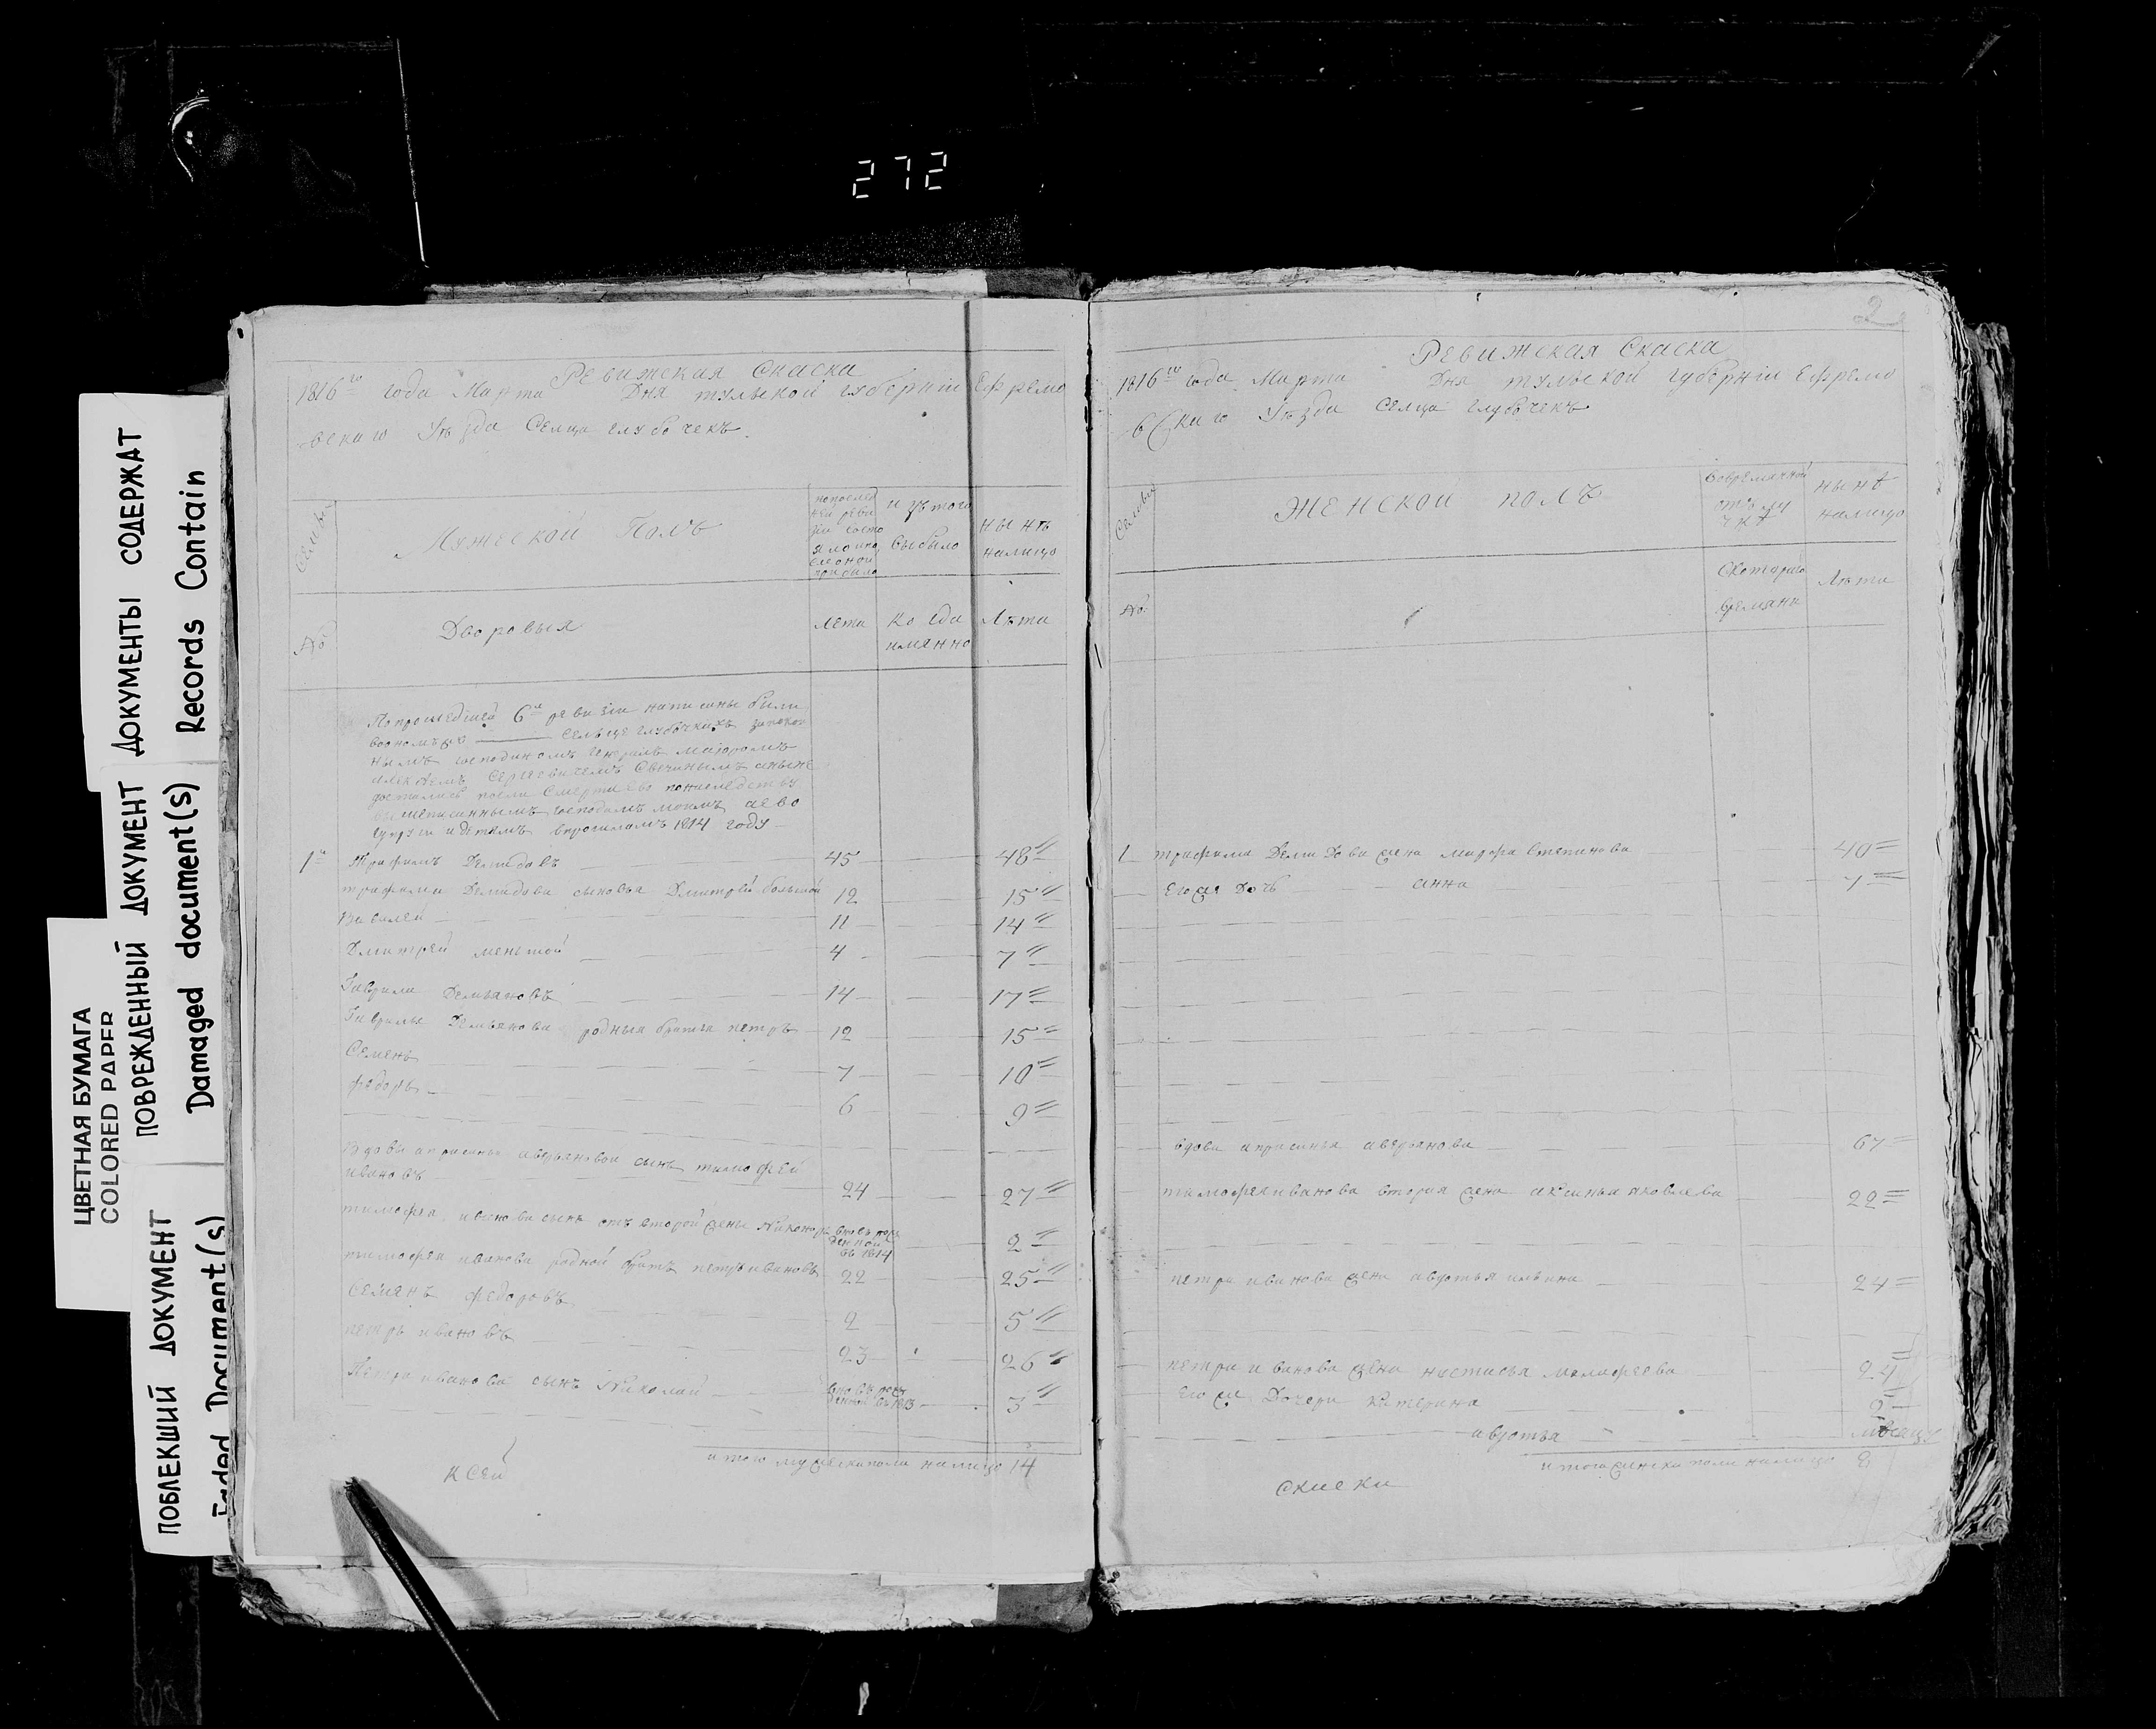 272
ЦВЕТНАЯ БУМАГА
COLORED PAPER
ПОБЛЕКШИЙ ДОКУМЕНТ
Faded Document(s)
ПОВРЕЖДЕННЫЙ ДОКУМЕНТ
Damaged document(s)
ДОКУМЕНТЫ СОДЕРЖАТ
Records Contain
Ревижская Скаска
1816го года Марта Дня тульской губернiи Ефремо
вскаго Уѣзда Селца глубочекъ
Семьи
Мужеской Полъ
по послед
ней реви
зiи состо
яло
изъ того
выбыло
нынѣ
налицо
№
Дворовыя
лета
когда
имянно
Лѣта
По прошедшей 6й ревизiи написаны были
селъце глубочкахъ
нымъ господиномъ генералъ маiоромъ
Сергеевичемъ Свечинымъ а нынѣ
достались после смерти ево по наследству
господамъ моимъ аево
супруги и детямъ в прошломъ 1814 году
1й Трафимъ Демидовъ 45 48
трафима Демидова сыновья Дмитрей большой 12 15
Вавилей 11 14
Дмитрей меньшой 4 7
Гаврила Демьяновъ 14 17
Гаврилы Демьянова родныя братья петръ 12 15
Семенъ 7 10
федоръ 6 9
Вдовы апрасиньи аверьяновой сынъ тимофей
ивановъ 24 27
тимофея иванова сынъ отъ второй жены Никаноръ вновь рож
денной
въ 1814 2
тимофея иванова родной братъ петръ ивановъ 22 25
Семянъ федоровъ 2 5
петръ ивановъ 23 26
Петра иванова сынъ Николай вновь рож
денной въ 1813 3
итого мужеска пола налицо 14
К сей
2
Ревижская Скаска
1816го года Марта Дня тульской губернiи Ефремо
вскаго Уѣзда Селца глубочекъ
Семьи
женской полъ
во временной
отлу
чкѣ
нынѣ
налицо
№
Скотораго
времяни
Лѣта
1 трафима Демидова жена марфа степанова 40
Егожа дочь анна 7
вдова апрасинья аверьянова 67
тимофея иванова вторая жена аксинья яковлева 22
петра иванова жена авдотья ильина 24
петра иванова жена настасья малафеева 24
Его же дочери катерина 2
авдотья
итого женска пола налицо 8
скаски